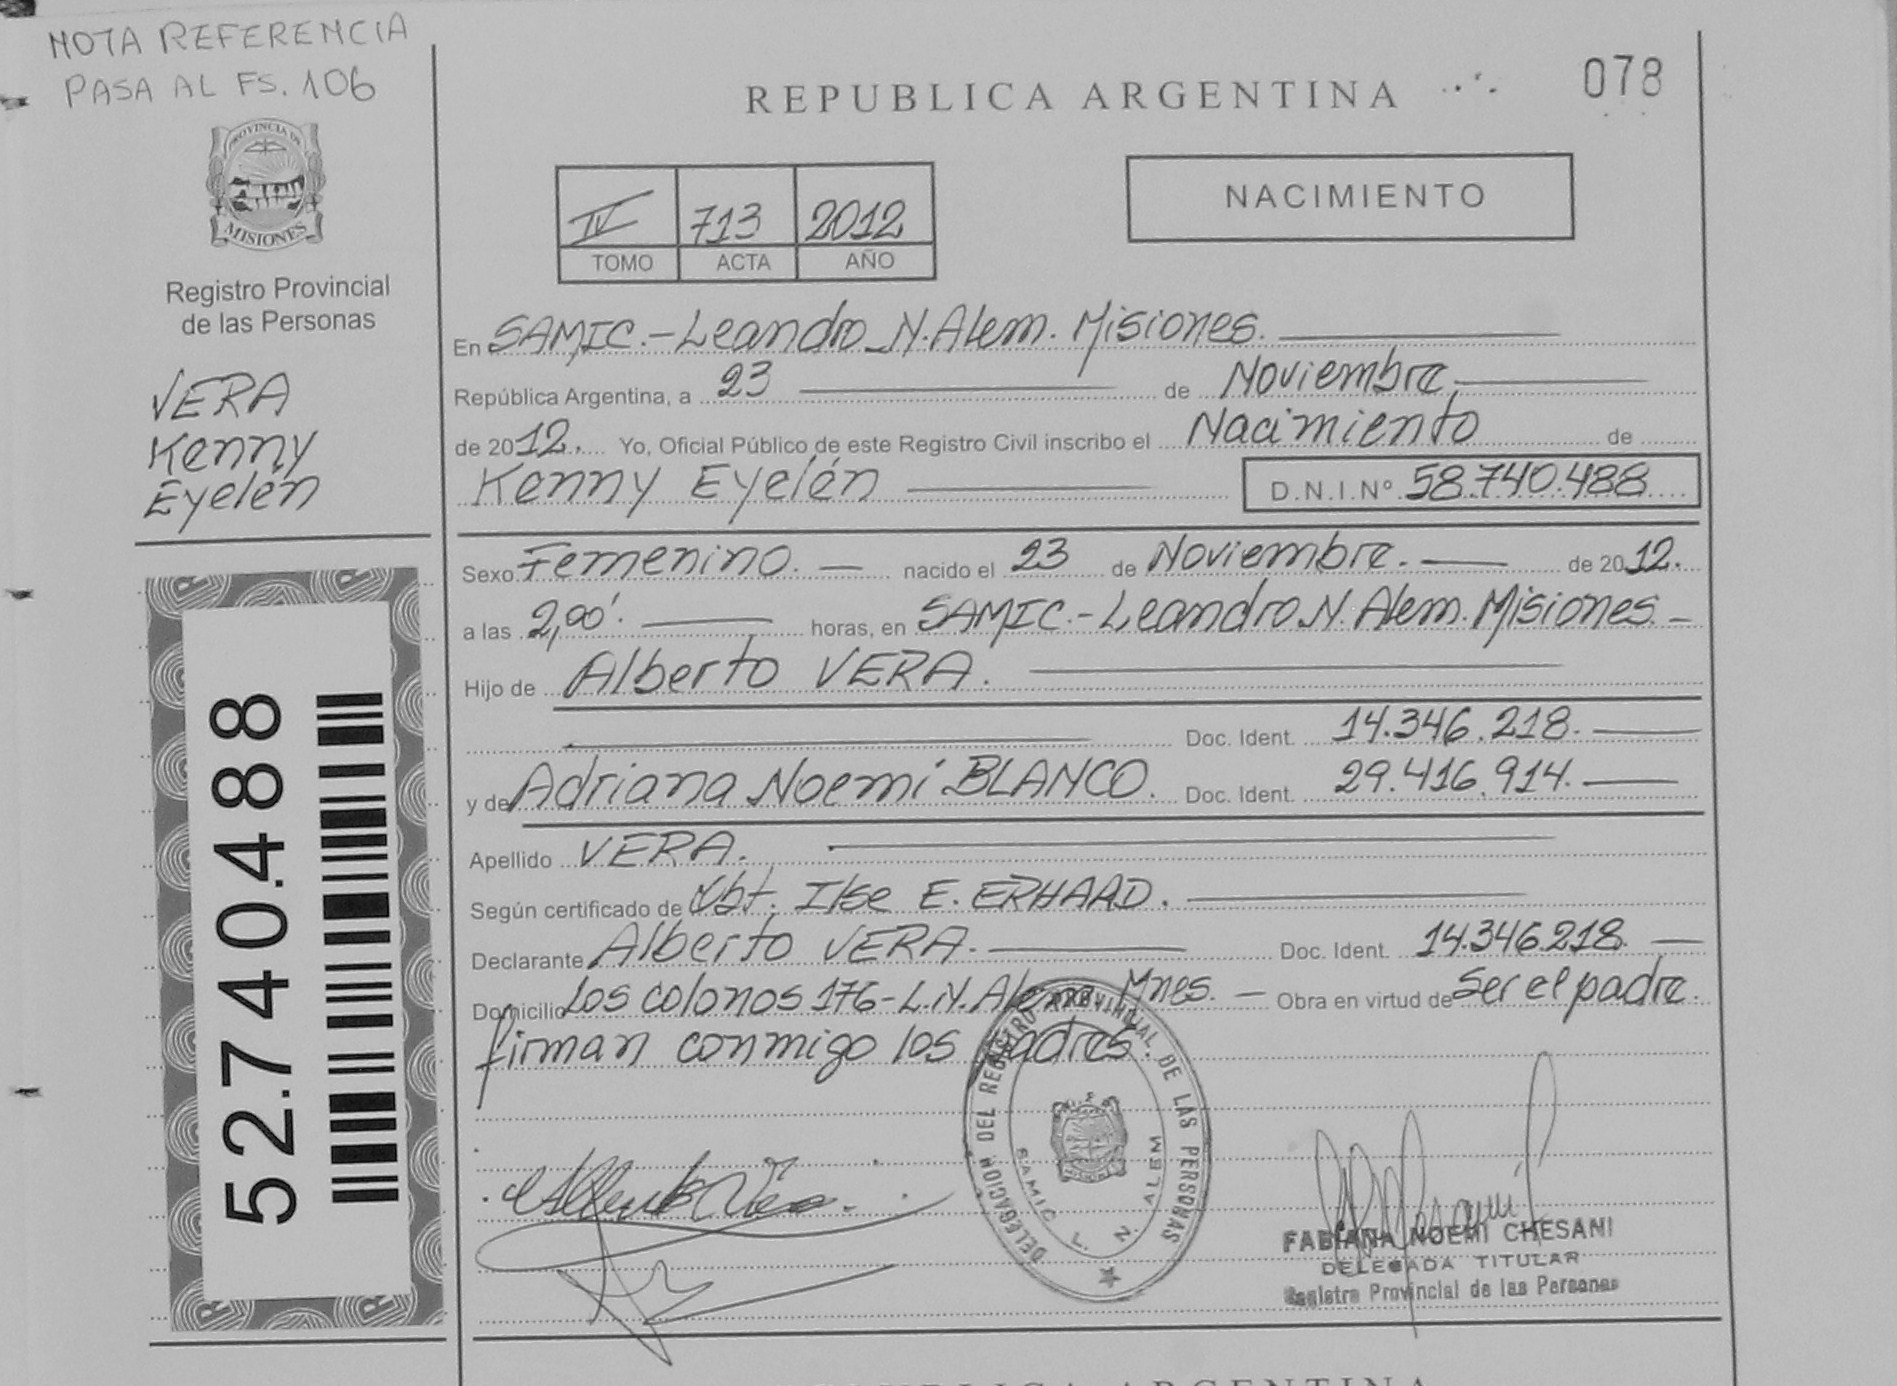 NOTA REFERENCIA
PASA AL FS. 106
PROVINCIA DE
MISIONES
Registro Provincial
de las Personas
VERA
Kenny
Eyelén
52.740.488
REPUBLICA ARGENTINA
078
IV 713 2012
TOMO ACTA AÑO
NACIMIENTO
En SAMIC.-Leandro N. Alem. Misiones.
República Argentina, a 23 de Noviembre.
de 2012. Yo, Oficial Público de este Registro Civil inscribo el Nacimiento de
Kenny Eyelén D.N.I.Nº 58.740.488
Sexo Femenino. nacido el 23 de Noviembre. de 2012.
a las 2,00'. horas, en SAMIC.-Leandro N. Alem. Misiones.
Hijo de Alberto VERA.
Doc. Ident. 14.346.218.
y de Adriana Noemí BLANCO. Doc. Ident. 29.416.914.
Apellido VERA.
Según certificado de Obt. Ilse E. ERHARD.
Declarante Alberto VERA. Doc. Ident. 14.346.218.
Domicilio Los colonos 176-L.N. Alem. Mnes. Obra en virtud de Ser el padre.
firman conmigo los padres.
DELEGACION DEL REGISTRO PROVINCIAL DE LAS PERSONAS
SAMIC L. N. ALEM
FABIANA NOEMI CHESANI
DELEGADA TITULAR
Registro Provincial de las Personas
REPUBLICA ARGENTINA